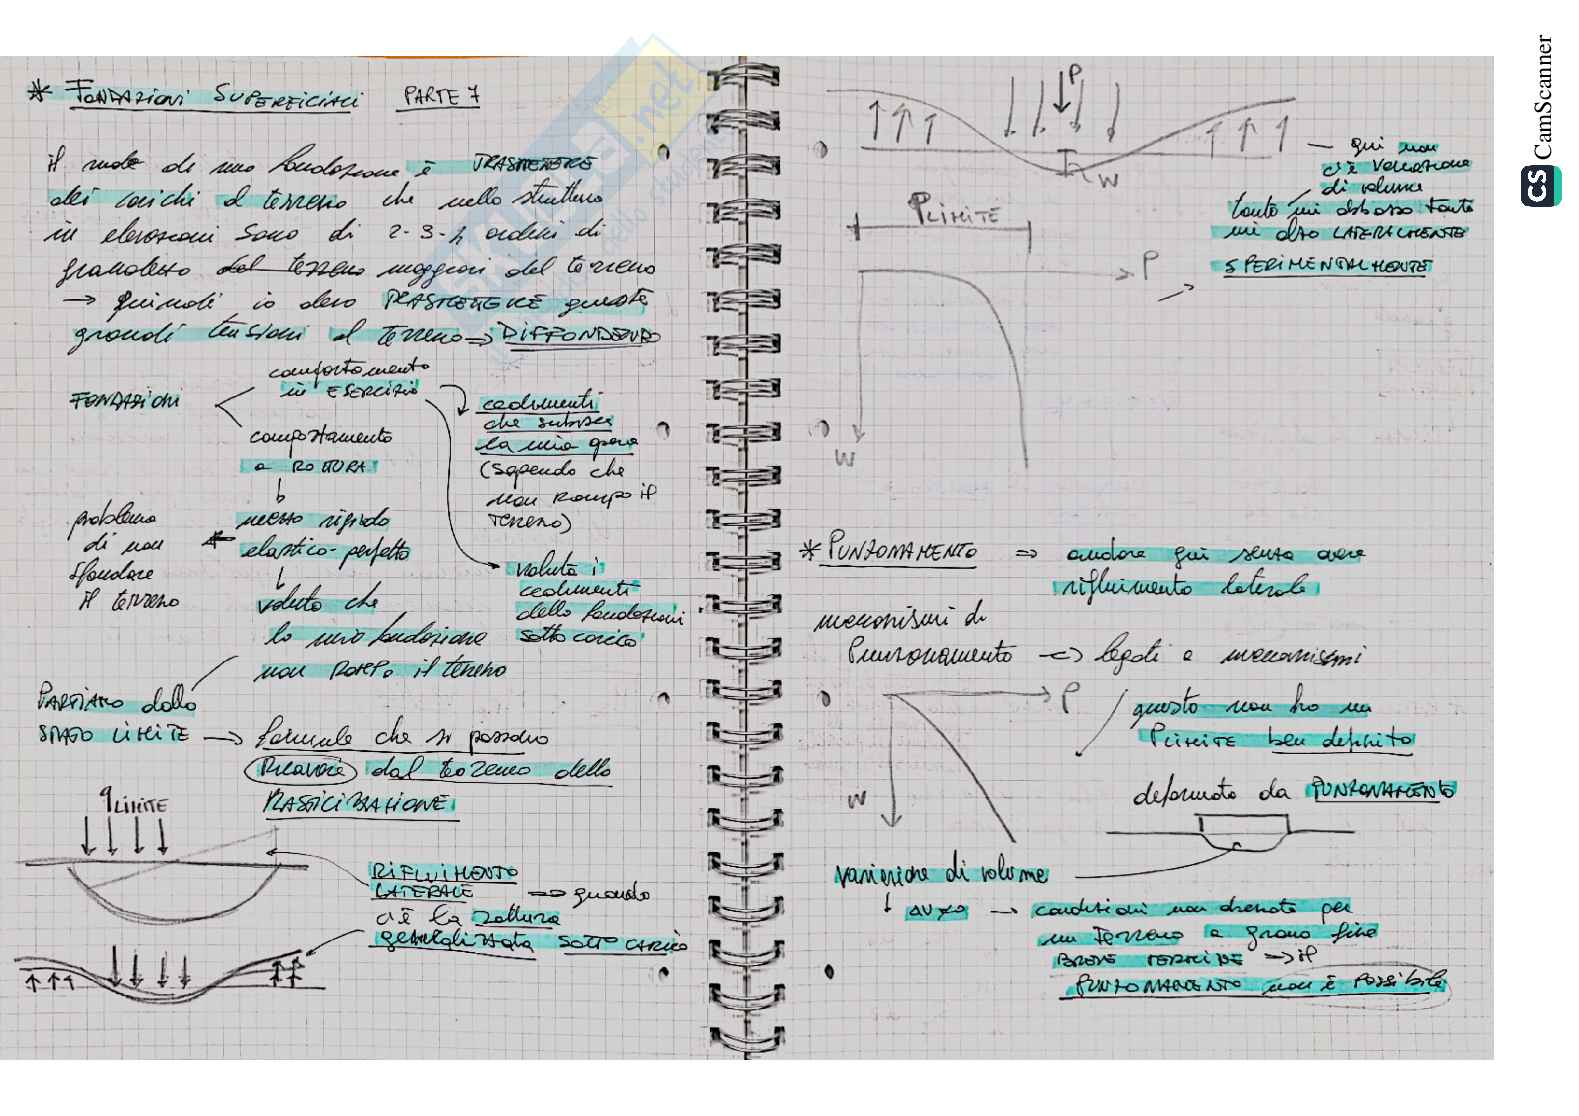 * FONDAZIONI SUPERFICIALI PARTE 7
il ruolo di una fondazione è TRASMETTERE
dei carichi al terreno che nella struttura
in elevazioni sono di 2-3-4 ordini di
grandezza del terreno maggiori del terreno
→ quindi io devo TRASMETTERE queste
grandi tensioni al terreno ⇒ DIFFONDENDO
FONDAZIONI
comportamento
in ESERCIZIO
cedimenti
che subisce
la mia opera
(sapendo che
non rompo il
terreno)
comportamento
a ROTTURA
mezzo rigido
elastico-perfetto
problema
di non
sfondare
il terreno
valuto i
cedimenti
delle fondazioni
sotto carico
valuto che
la mia fondazione
non ROMPA il terreno
PARTIAMO dallo
STATO LIMITE → formule che si possono
RICAVARE dal teorema della
PLASTICIZZAZIONE
qLIMITE
RIFLUIMENTO
LATERALE ⇒ quando
c'è la rottura
generalizzata SOTTO CARICO
P
W
— qui non
c'è variazione
di volume
tanto mi abbasso tanto
mi alzo LATERALMENTE
SPERIMENTALMENTE
PLIMITE
P
W
* PUNZONAMENTO ⇒ andare giù senza avere
rifluimento laterale
meccanismi di
Punzonamento ↔ legati a meccanismi
P
W
questo non ho un
PLIMITE ben definito
deformata da PUNZONAMENTO
variazione di volume
↓ ΔV≠0 → condizioni non drenate per
un Terreno a grana fine
BREVE TERMINE → il
PUNZONAMENTO non è possibile
CS CamScanner